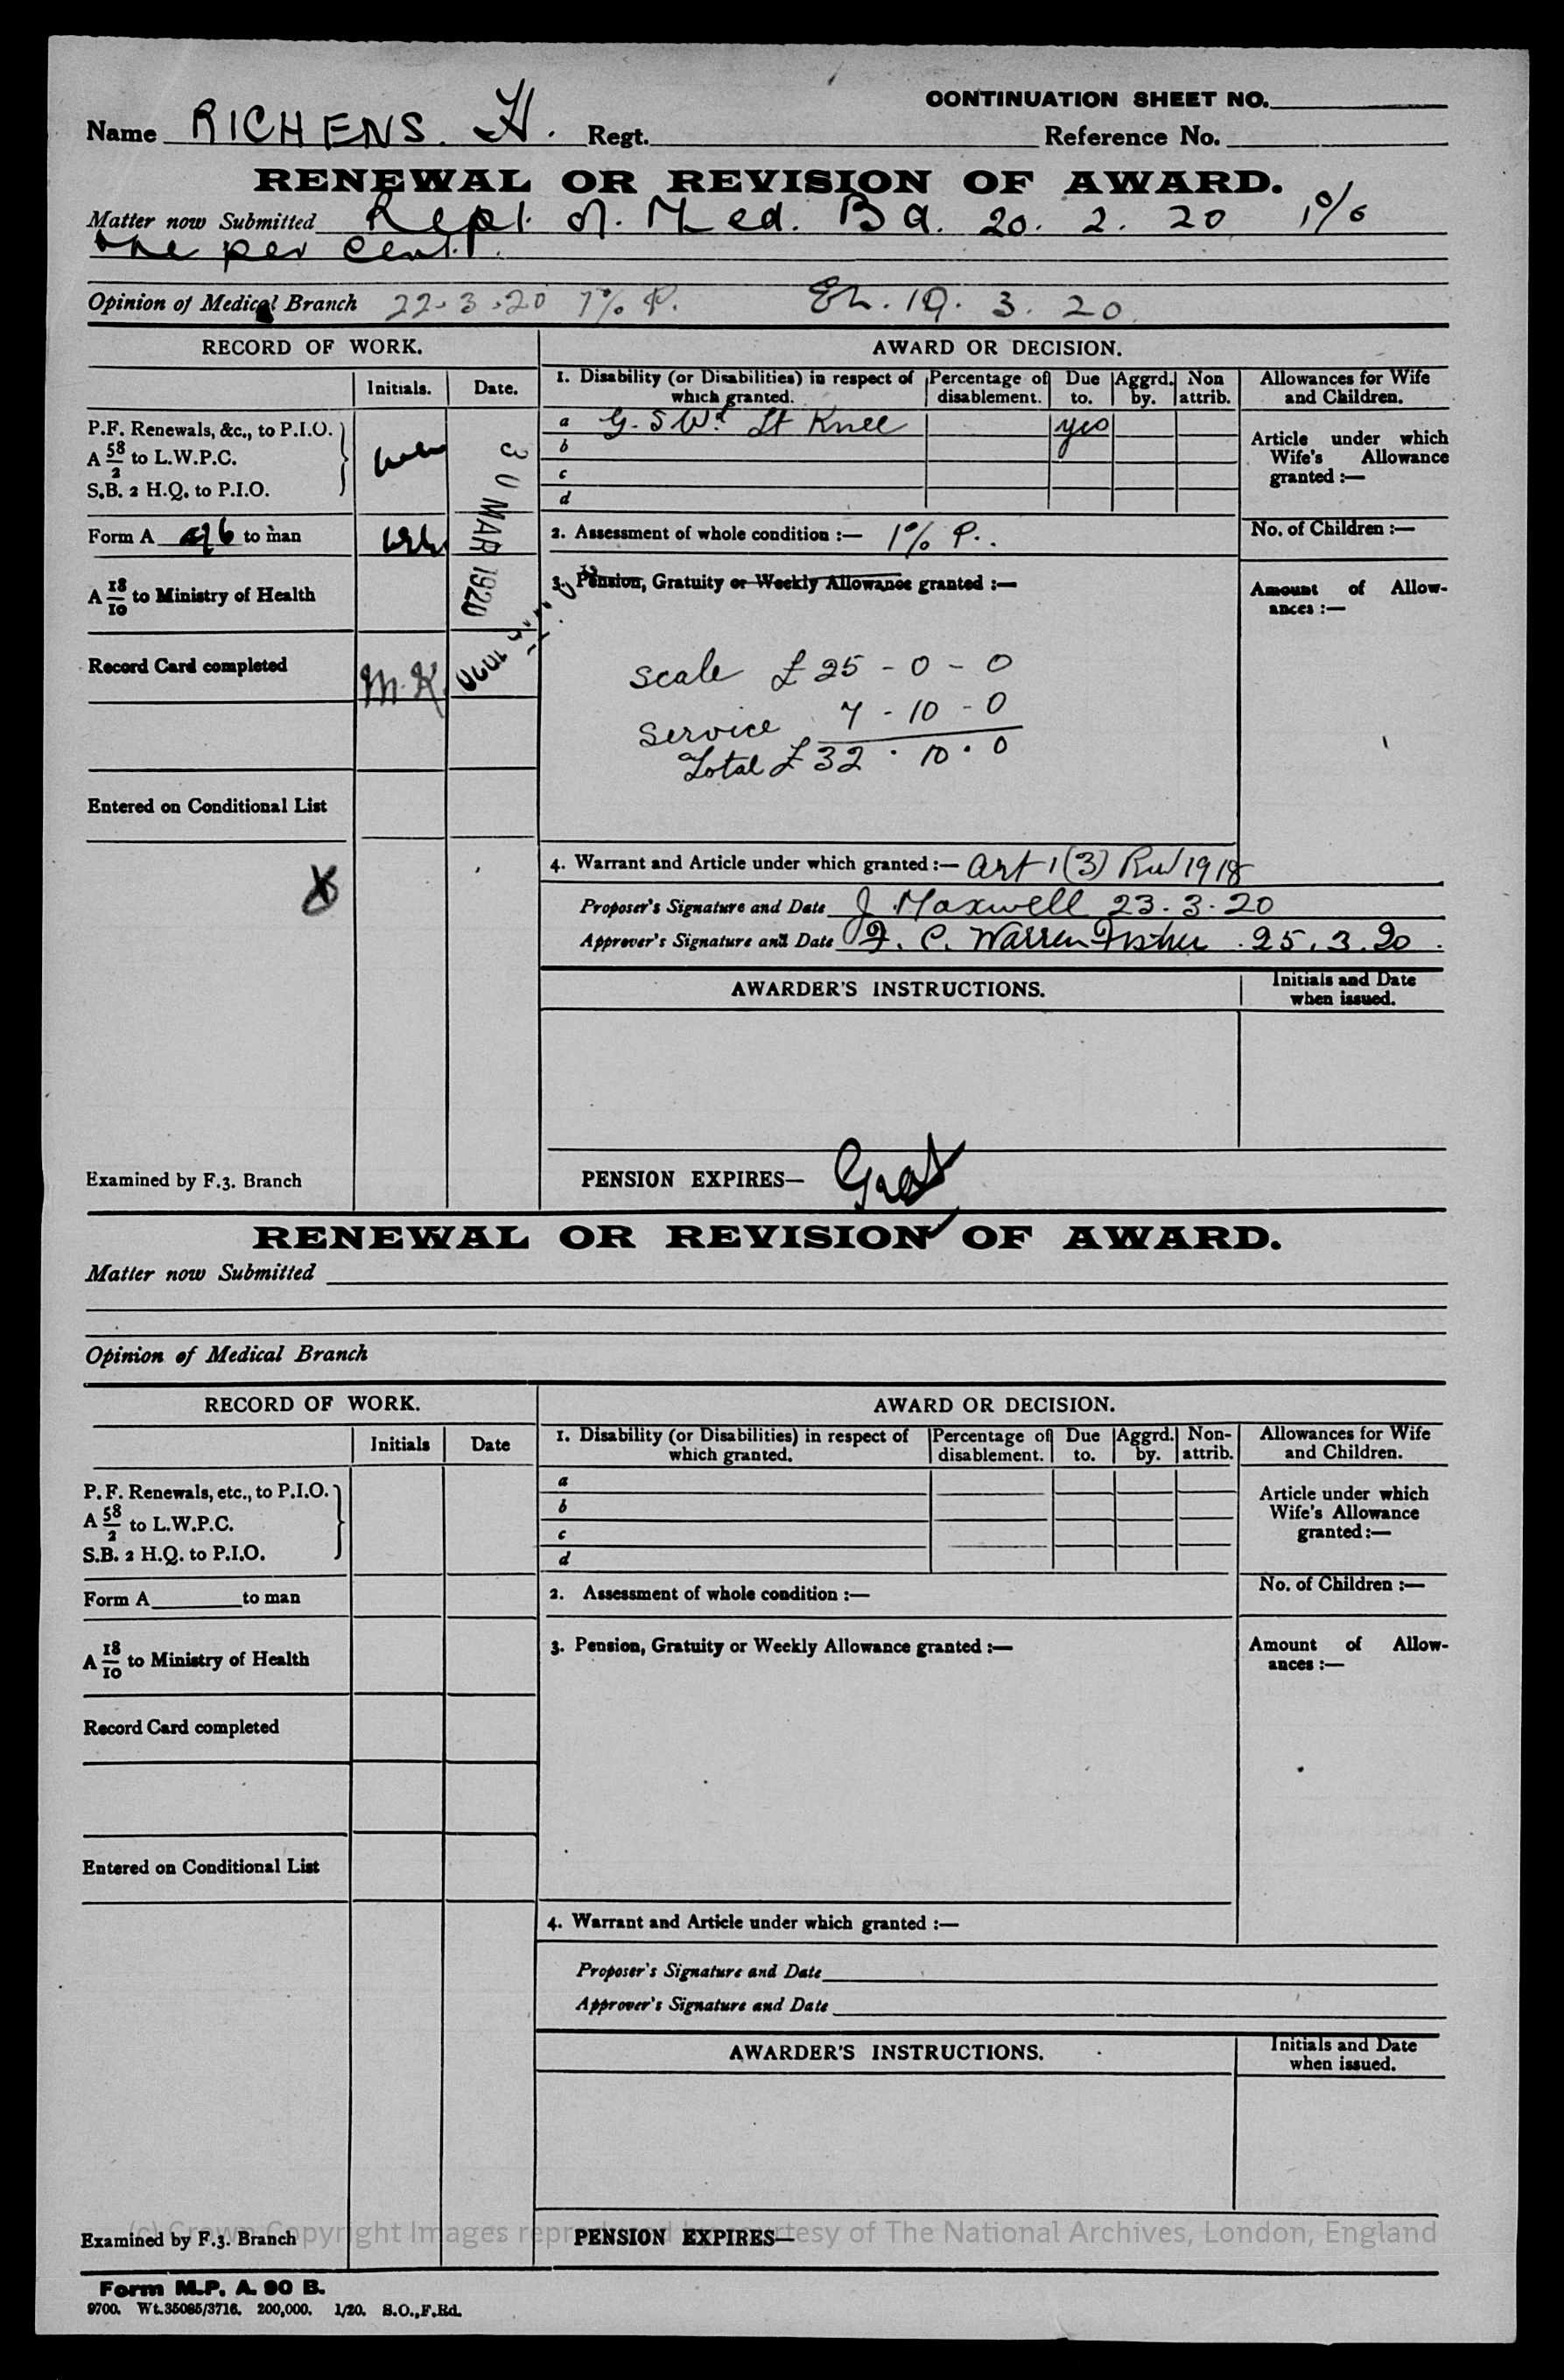 CONTINUATION SHEET NO.
Name RICHENS. H. Regt. Reference No.
RENEWAL OR REVISION OF AWARD.
Matter now Submitted Rept. of. Med. Bd. 20. 2. 20 1%
One per cent.
Opinion of Medical Branch 22.3.20 1% P. 19. 3. 20.
RECORD OF WORK.
Initials. Date.
P.F. Renewals, &c., to P.I.O.
A 58/2 to L.W.P.C.
S.B. 2 H.Q. to P.I.O.
30 MAR 1920
Form A to man
A 18/10 to Ministry of Health
Record Card completed M.K.
Entered on Conditional List
X
Examined by F.3. Branch
AWARD OR DECISION.
1. Disability (or Disabilities) in respect of which granted. Percentage of disablement. Due to. Aggrd. by. Non attrib.
a G.S.Wd Lt Knee yes
b
c
d
2. Assessment of whole condition :— 1% P..
3. Pension, Gratuity or Weekly Allowance granted :—
Scale £25 - 0 - 0
Service 7 - 10 - 0
Total £32 . 10 . 0
Allowances for Wife and Children.
Article under which
Wife's Allowance
granted :—
No. of Children :—
Amount of Allow-
ances :—
4. Warrant and Article under which granted :— Art 1(3) RW 1918
Proposer's Signature and Date J. Maxwell 23.3.20
Approver's Signature and Date F. C. Warren Fisher . 25.3.20.
AWARDER'S INSTRUCTIONS.
Initials and Date
when issued.
PENSION EXPIRES— Grat
RENEWAL OR REVISION OF AWARD.
Matter now Submitted
Opinion of Medical Branch
RECORD OF WORK.
Initials Date
P.F. Renewals, etc., to P.I.O.
A 58/2 to L.W.P.C.
S.B. 2 H.Q. to P.I.O.
Form A to man
A 18/10 to Ministry of Health
Record Card completed
Entered on Conditional List
Examined by F.3. Branch
AWARD OR DECISION.
1. Disability (or Disabilities) in respect of which granted. Percentage of disablement. Due to. Aggrd. by. Non-attrib.
a
b
c
d
2. Assessment of whole condition :—
3. Pension, Gratuity or Weekly Allowance granted :—
Allowances for Wife and Children.
Article under which
Wife's Allowance
granted :—
No. of Children :—
Amount of Allow-
ances :—
4. Warrant and Article under which granted :—
Proposer's Signature and Date
Approver's Signature and Date
AWARDER'S INSTRUCTIONS.
Initials and Date
when issued.
PENSION EXPIRES—
(c) Crown Copyright Images reproduced by courtesy of The National Archives, London, England
Form M.P. A. 90 B.
9700. Wt.35085/3716. 200,000. 1/20. S.O.,F.Rd.